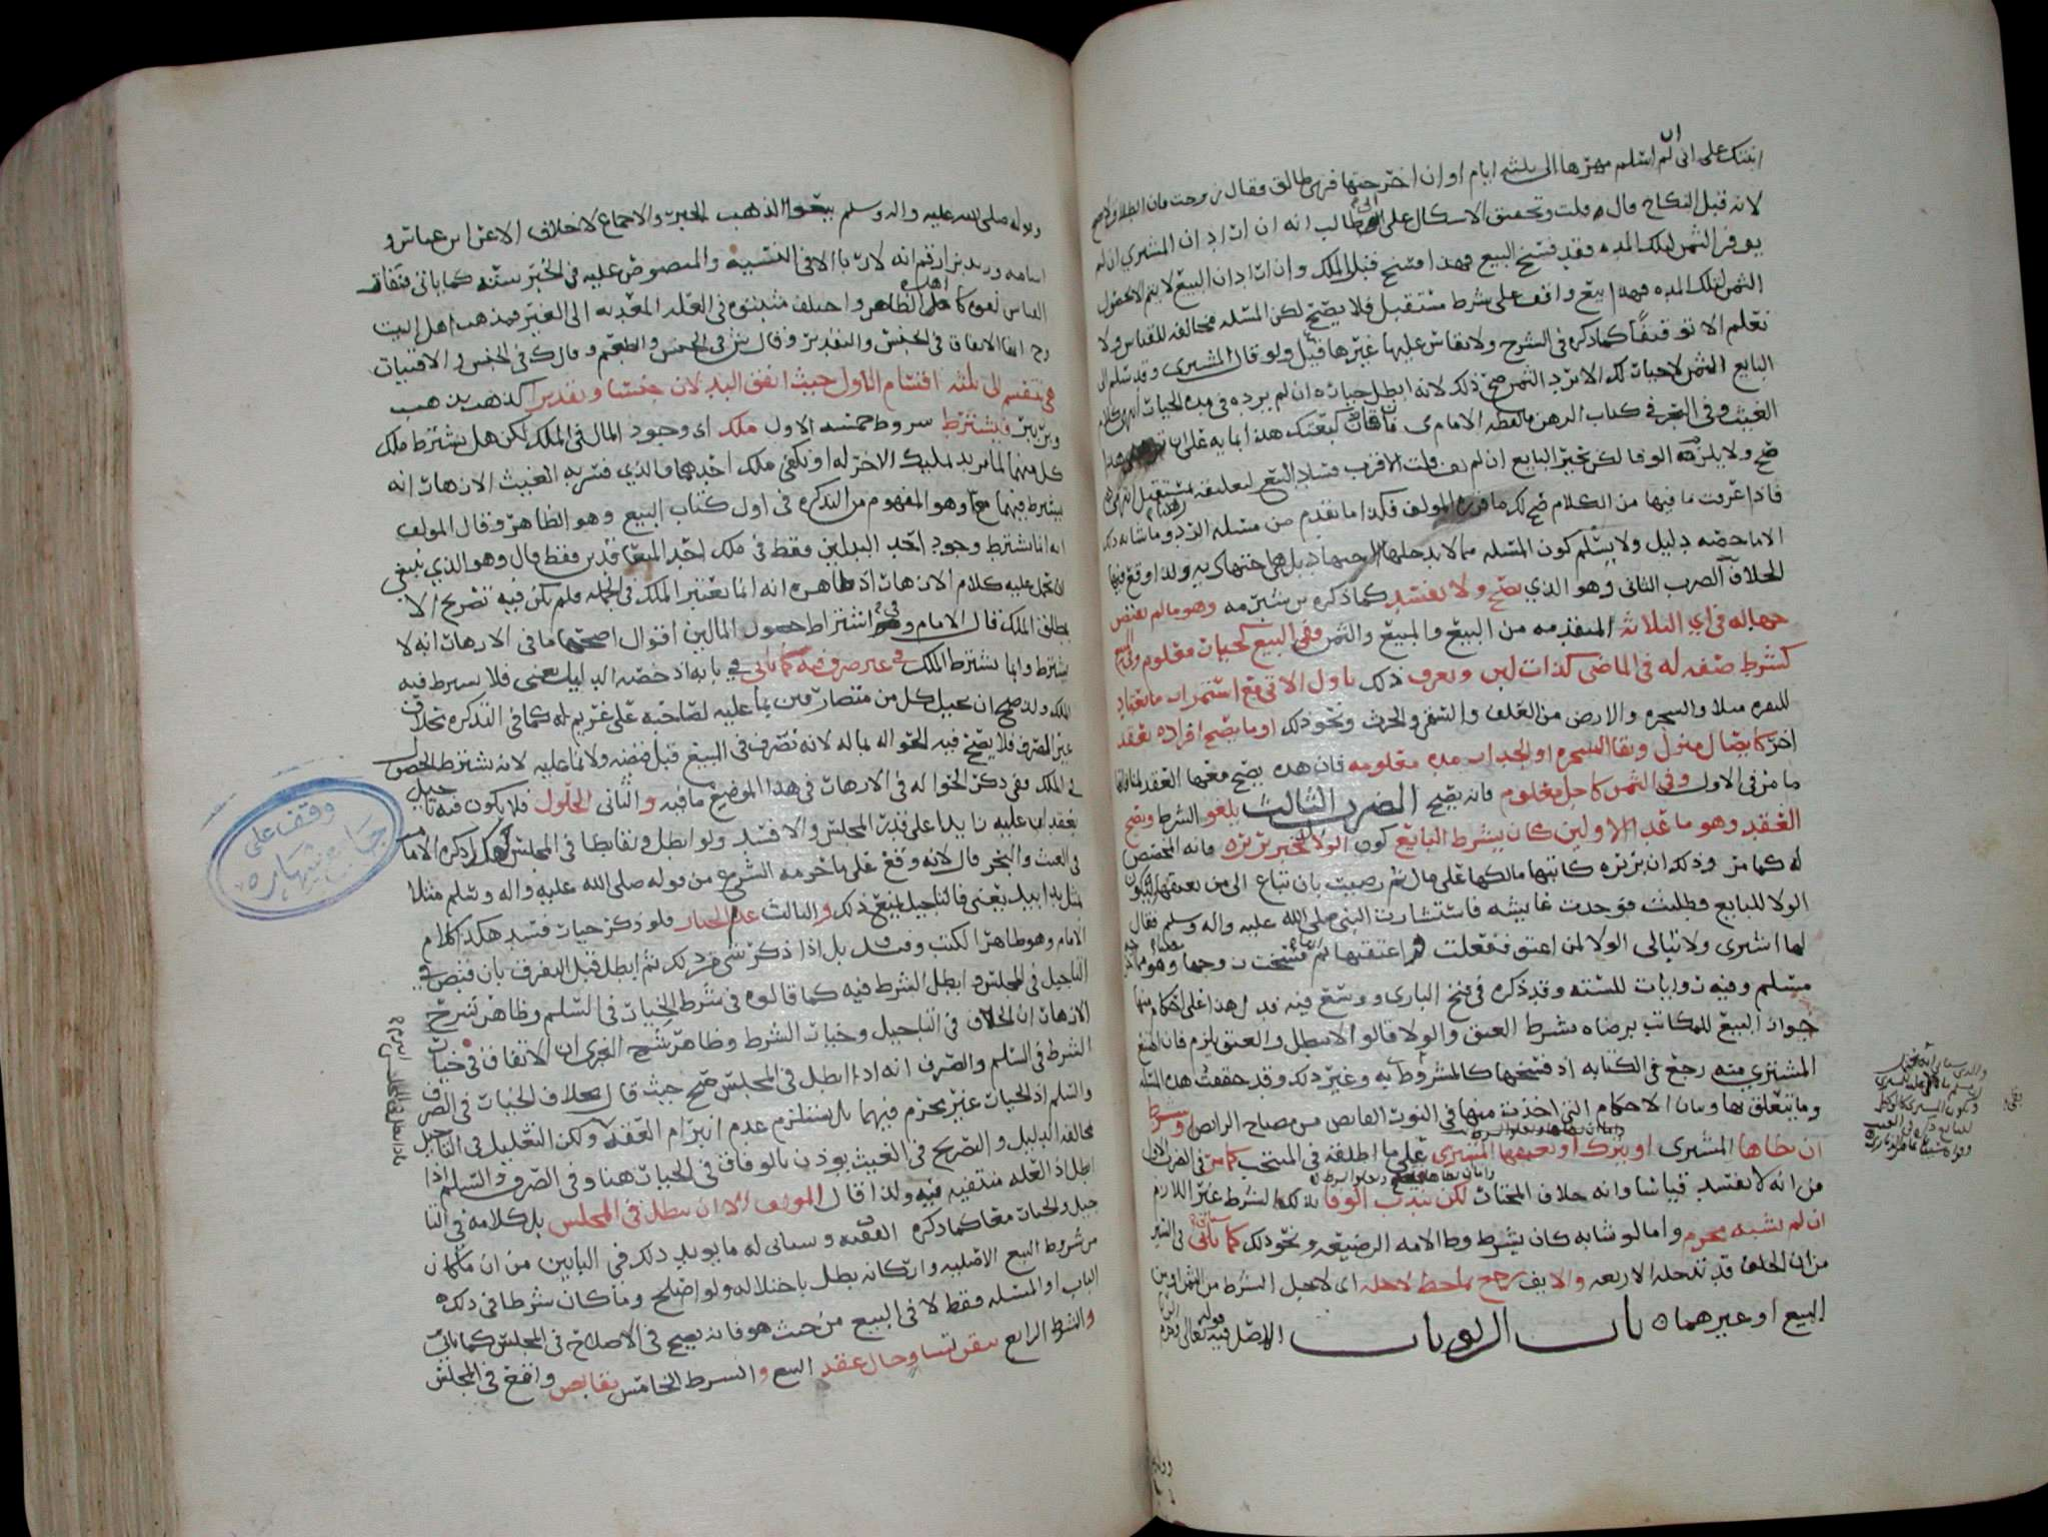 ابنتك على انى ان لم اسلم مهرها الى ثلثة ايام او ان اخرجتها فهى طالق فقال زوجت فان الطلاق لا يصح
لانه قبل النكاح قال قلت وتحقيق الاشكال على ابى طالب انه ان اراد ان المشتري ان لم
يوفر الثمن لتلك المده فقد فسخ البيع فهذا فسخ قبل الملك وان اراد ان البيع لا يتم الا بحصول
الثمن لتلك المده فهذا بيع واقف على شرط مستقبل فلا يصح لكن المسئله مخالفه للقياس ولا
تعلم الا توقيفا كما ذكره فى الشرح ولا يقاس عليها غيرها قيل ولو قال المشترى وقد سلم الى
البايع الثمن لا خيار لك الا برد الثمن صح ذلك لانه ابطل خياره ان لم يرده فى مده الخيار انتهى كلام
الغيث وفى البحر فى كتاب الرهن ما لفظه الامام ى فان قال بعتك هذا
صح ولا يلزمه الوفا لكن يخير البايع ان لم يف قلت الاقرب فساد البيع لتعليقه بمستقبل انتهى
فاذا عرفت ما فيها من الكلام صح لك ما قرره المولف فكذا ما تقدم من مسئله الرد وما شابه ذلك
الا ما خصه دليل ولا يسلم كون المسئله مما لا يدخلها
الخلاف الضرب الثانى وهو الذي يصح ولا يفسد كما ذكره بن شبرمه وهو ما لم يقتض
جهاله فى اي الثلاثه المتقدمه من البيع والمبيع والثمن ففى البيع كخيار معلوم وفى المبيع
كشرط صفه له فى الماضى كذات لبن ويعرف ذلك باول الاتى مع استمرار ما يعتاد
للبقره مثلا والشجره والارض من العلف والسقي والحرث ونحو ذلك او ما يصح افراده بعقد
اخر كايصال منزل وبقا الشجره او الجدار مده معلومه فان هذه يصح معها العقد
ما مر فى الاول وفى الثمن كاجل معلوم فانه يصح الضرب الثالث يلغو الشرط ويصح
العقد وهو ما عدا الاولين كان يشرط البايع كون الولا له لخبر بريره فانه المخصص
له كما مر وذلك ان بريره كاتبها مالكها على مال ثم رضيت بان تباع الى من يعتقها ليكون
الولا للبايع فطلبت فوجدت عايشه فاستشارت النبى صلى الله عليه واله وسلم فقال
لها اشترى ولا تبالى الولا لمن اعتق ففعلت ثم اعتقتها ثم فسخت زوجها وهو
مسلم وفيه روايات للسته وقد ذكره فى فتح البارى ووسع فيه فدل هذا على احكام منها
جواز البيع للمكاتب برضاه بشرط العتق والولا قالوا لا يبطل والعتق يلزم فان امتنع
المشترى منه رجع فى الكتابه اذ فسخها كالمشروط به وغير ذلك وقد حققت هذه المسئله
وما يتعلق بها وبيان الاحكام التى اخذت منها فى الثوب القايض من مصباح الرايض وبشرط
ان يطاها المشترى او يبرك او يعتقها المشترى على ما اطلقه فى المنتخب كما مر فى الضرب الاول
من انه لا يفسد قياسا وانه خلاف المختار لكن يندب الوفا بذلك الشرط غير اللازم
ان لم يشبه محرم واما لو شابه كان يشرط وطا الامه الرضيعه ونحو ذلك كما ياتى فى السير
من ان الحلف قد تدخله الاربعه والا يف رجع بما حط لاجله اى لاجل الشرط من الثمن او من
البيع او غيرهما باب الربويات الاصل فيه قوله تعالى وحرم
وقوله صلى الله عليه واله وسلم بيعوا الذهب الخبر والاجماع لا خلاف الا عن ابن عباس و
اسامه وزيد بن ارقم انه لا ربا الا فى النسيه والمنصوص عليه فى الخبر سته كما ياتى فنفاه
القياس لغوه كاهل الظاهر واختلف مثبتوه فى العله المعديه الى الغير فمذهب اهل البيت
رح انها الاتفاق فى الجنس والتقدير وقال ش فى الجنس والطعم وقال ك فى الجنس والاقتيات
هى تنقسم الى ثلثه اقسام الاول حيث اتفق البدلان جنسا وتقديرا كذهب بذهب
وبر ببر فيشترط شروط خمسه الاول ملك اى وجود المال فى الملك لكن هل يشترط ملك
كل منهما لما يريد تمليك الاخر له او يكفى ملك احدهما فالذي فسر به الغيث الازهار انه
يشترط فيهما معا وهو المفهوم من التذكره فى اول كتاب البيع وهو الظاهر وقال المولف
انه انما يشترط وجود احد البدلين فقط فى ملك احد المتعاقدين فقط قال وهو الذي ينبغي
ان يحمل عليه كلام الازهار اذ ظاهره انه انما يعتبر الملك فى الجمله فلم يكن فيه تصريح الا
بمطلق الملك قال الامام وفى اشتراط حصول المالين اقوال اصحها ما فى الازهار انه لا
يشترط وانما يشترط الملك فى غير صرف فيه كما ياتى في بابه اذ خصه الدليل يعنى فلا يشترط فيه
الملك ولذا صح ان يحيل كل من متصارفين بما عليه لصاحبه على غريم له كما فى التذكره بخلاف
غير الصرف فلا يصح فيه الحواله بما له لانه تصرف فى المبيع قبل قبضه ولا بما عليه لانه يشترط الحصول
فى الملك ففى ذكر الحواله فى الازهار فى هذا الموضع ما فيه والثانى الحلول فلا يكون فيه تاجيل
بعقد او عليه زايدا على قدر المجلس والا فسد ولو ابطل وتقابضا فى المجلس هكذا ذكره الامام
فى الغيث والبحر قال لانه وقع على ما حرمه الشرع من قوله صلى الله عليه واله وسلم مثلا
بمثل يدا بيد يعنى فالتاجيل يمنع ذلك والثالث عدم الخيار فلو ذكر خيار فسد هكذا كلام
الامام وهو ظاهر الكتب وقيل بل اذا ذكر شي من ذلك ثم ابطل قبل التفرق بان قبض في
التاجيل فى المجلس وابطل الشرط فيه كما قالوه فى شرط الخيار فى السلم وظاهر شرح
الازهار ان الخلاف فى التاجيل وخيار الشرط وظاهر شرح النجرى ان الاتفاق فى خيار
الشرط فى السلم والصرف انه اذا ابطل فى المجلس صح حيث قال بخلاف الخيار فى الصرف
والسلم اذ الخيار غير محرم فيهما بل يستلزم عدم انبرام العقد ولكن التعليل فى التاجيل
مخالفه الدليل والتصريح فى الغيث يوذن بالوفاق فى الخيار هنا وفى الصرف والسلم اذا
ابطل اذ العله منتفيه فيه ولذا قال المولف الا ان يبطل فى المجلس بل كلامه في التا
جيل والخيار معا كما ذكره الفقيه وسياتى له ما يويد ذلك فى البابين من ان ما كان
من شروط البيع الاصليه واركانه بطل باختلاله ولو اصلح وما كان شرطا فى ذلك
الباب او المسئله فقط لا فى البيع من حيث هو فانه يصح فى الاصلاح فى المجلس كما ياتى
والشرط الرابع تيقن تساو حال عقد البيع والشرط الخامس تقابض واقع فى المجلس
وقف على
جامع شهاره